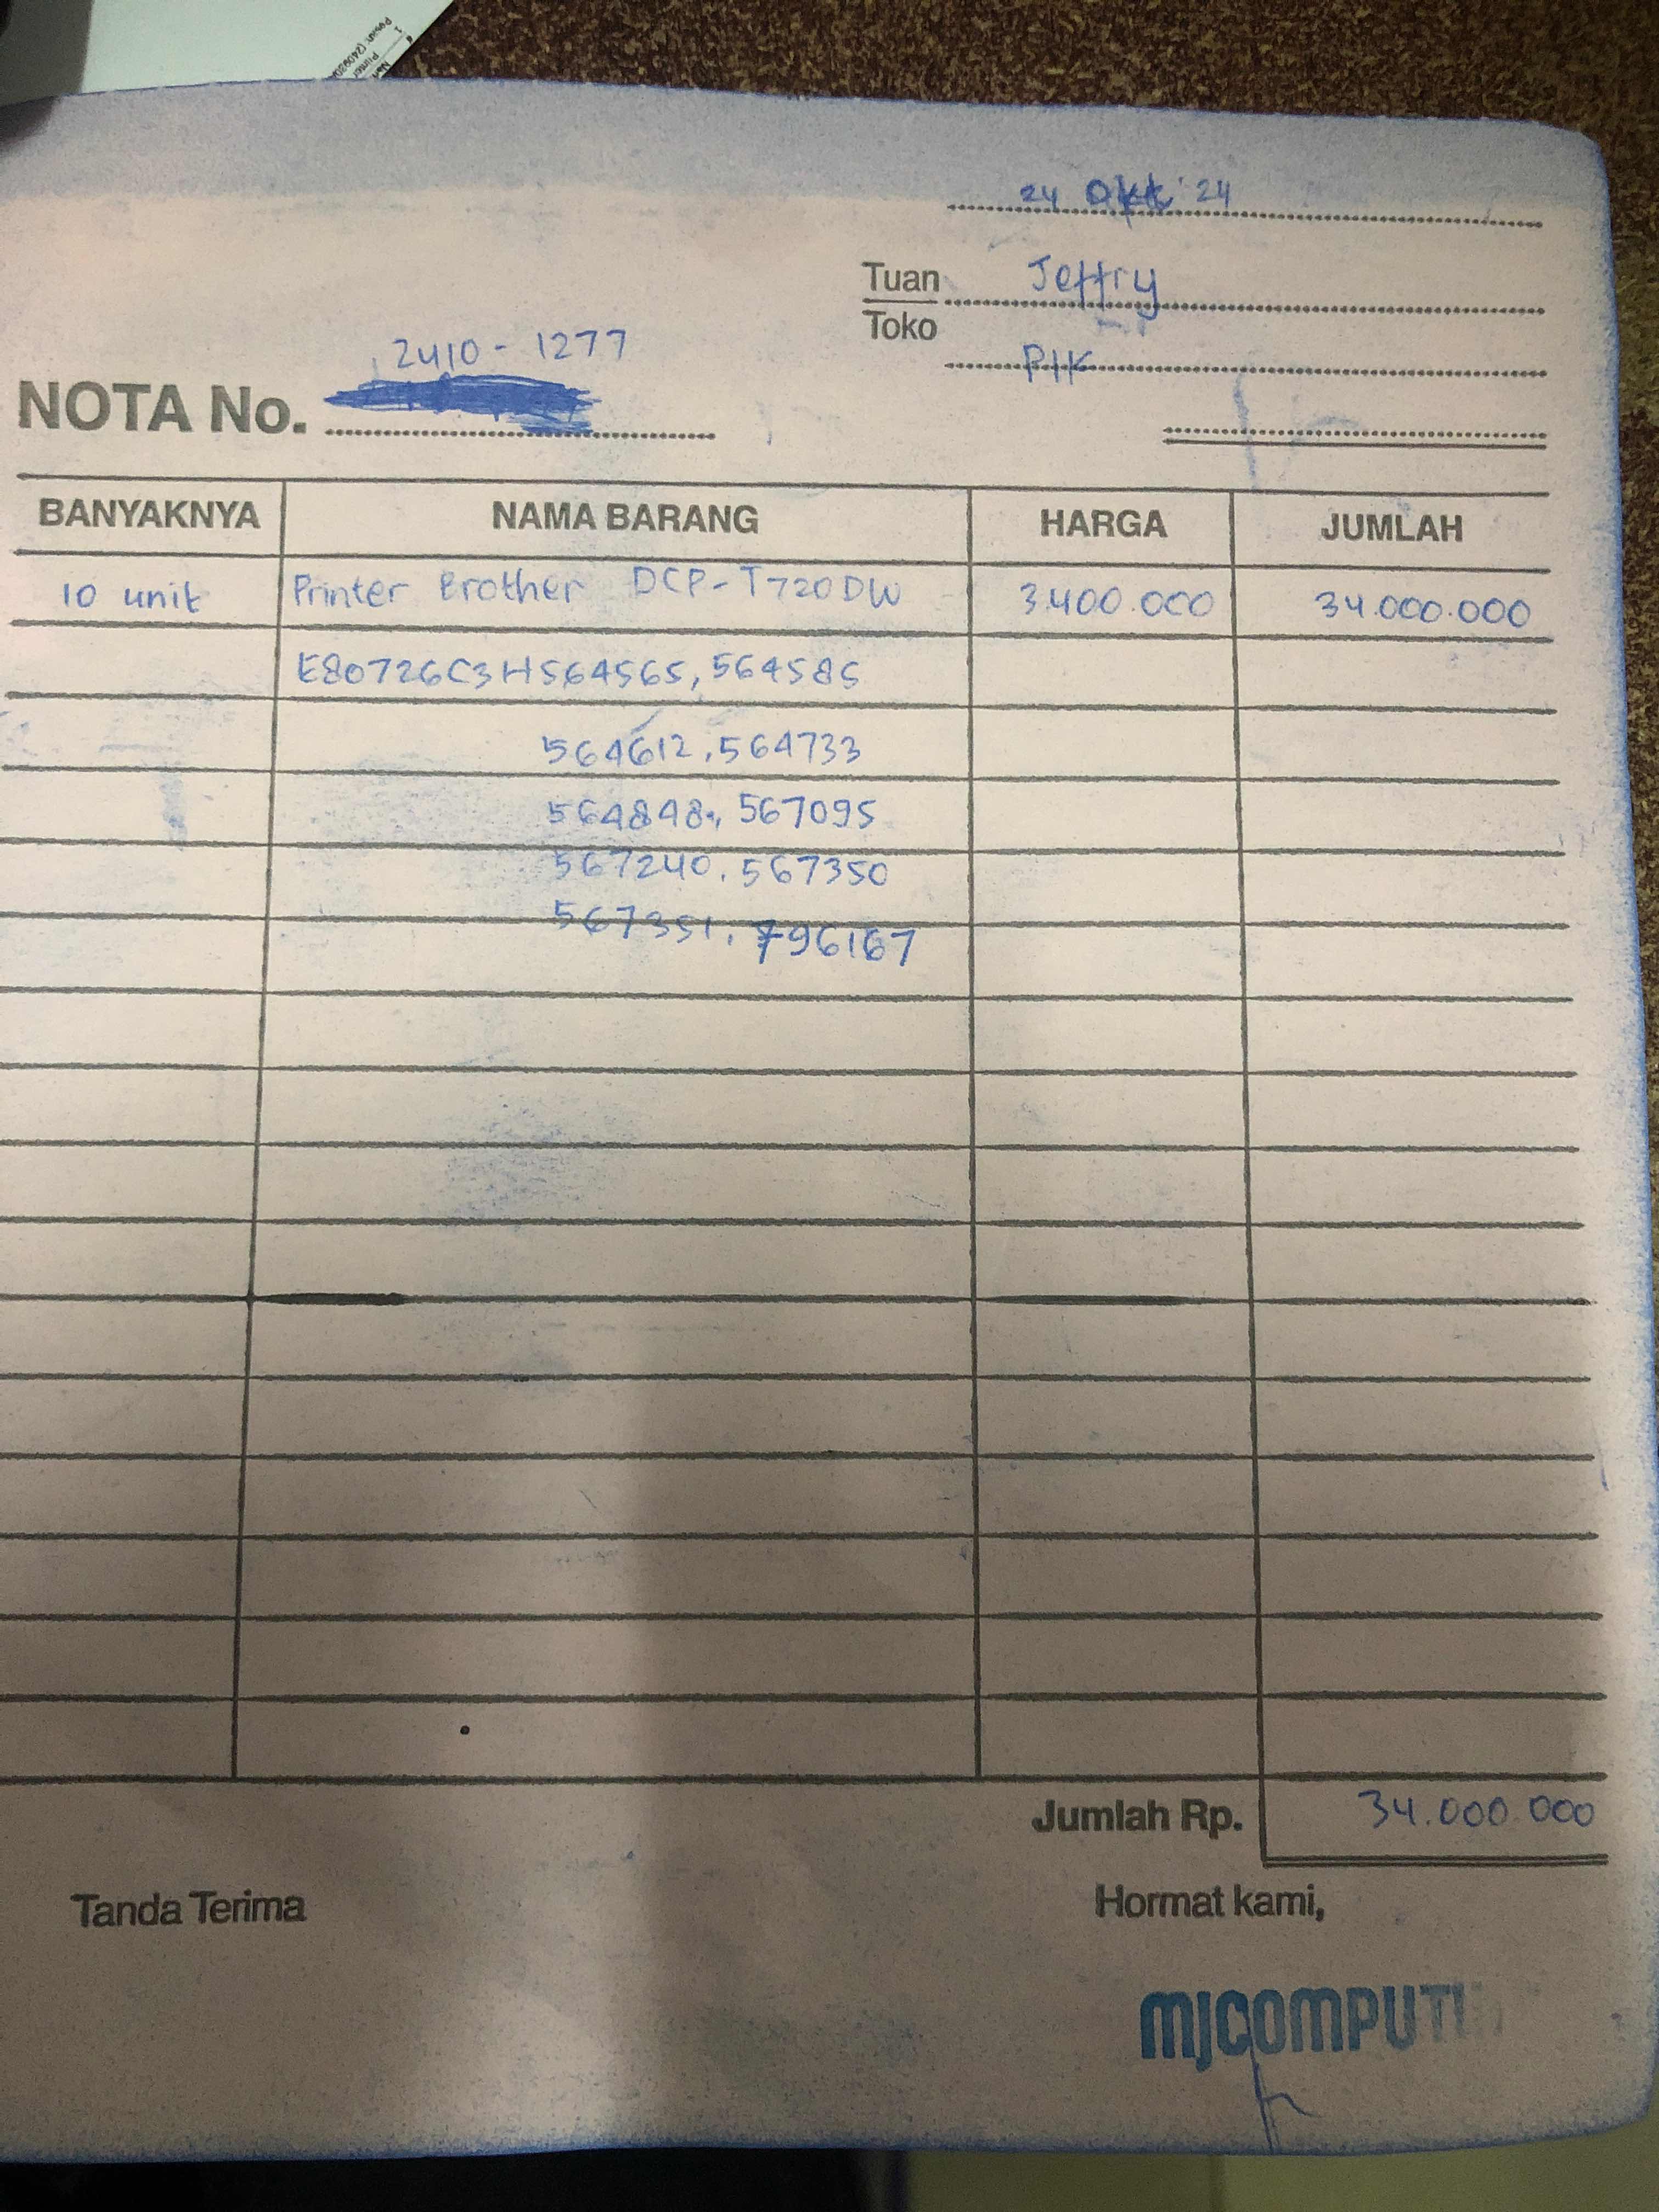 24 Okt '24
Tuan Jeffry
Toko
PIK
2410-1277
NOTA No.
BANYAKNYA NAMA BARANG HARGA JUMLAH
10 unit Printer Brother DCP-T720DW 3.400.000 34.000.000
E80726C3H564565, 564585
564612, 564733
564848, 567095
567240, 567350
567351, 796167
Jumlah Rp. 34.000.000
Tanda Terima Hormat kami,
MJCOMPUT